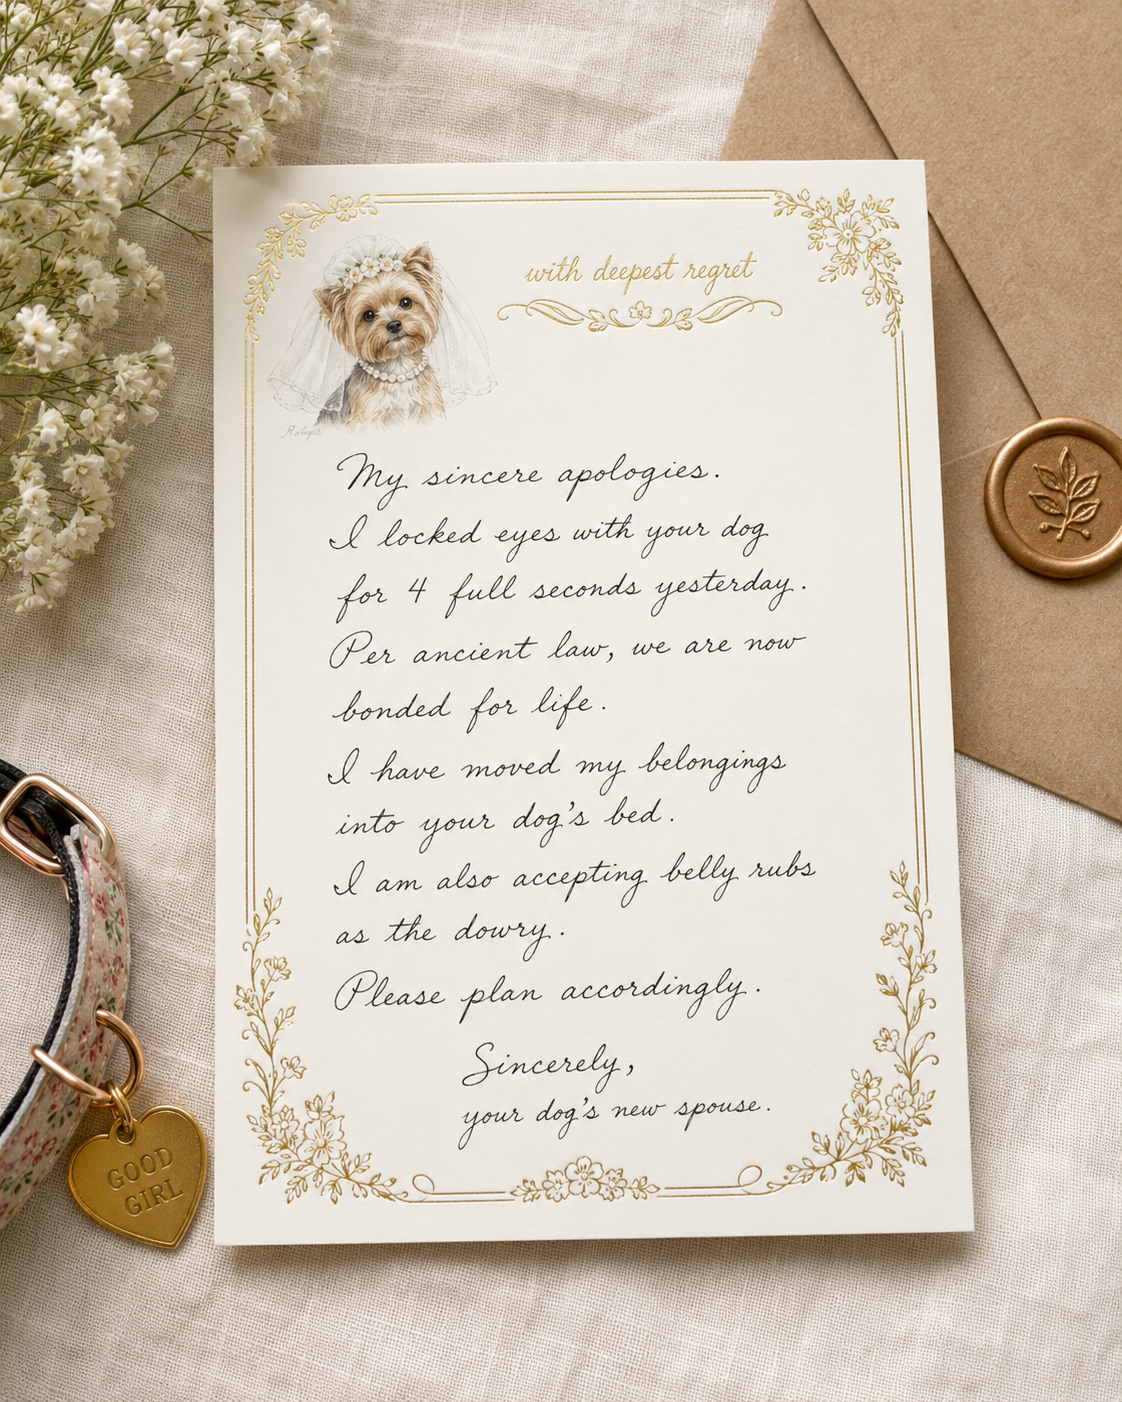 with deepest regret
My sincere apologies.
I locked eyes with your dog
for 4 full seconds yesterday.
Per ancient law, we are now
bonded for life.
I have moved my belongings
into your dog's bed.
I am also accepting belly rubs
as the dowry.
Please plan accordingly.
Sincerely,
your dog's new spouse.
GOOD
GIRL